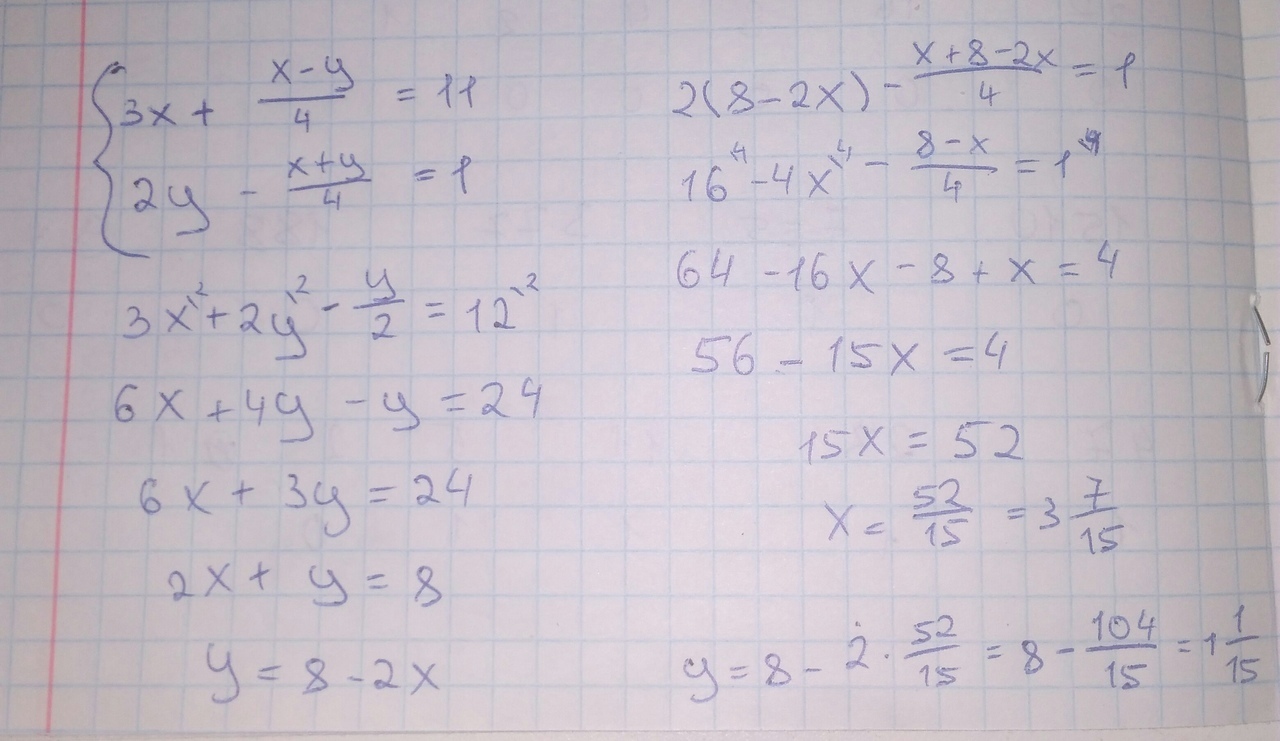 3x + \frac{x-y}{4} = 11
2y - \frac{x+y}{4} = 1
3x^{\backslash 2} + 2y^{\backslash 2} - \frac{y}{2} = 12^{\backslash 2}
6x + 4y - y = 24
6x + 3y = 24
2x + y = 8
y = 8 - 2x
2(8-2x) - \frac{x+8-2x}{4} = 1
16^{\backslash 4} - 4x^{\backslash 4} - \frac{8-x}{4} = 1^{\backslash 4}
64 - 16x - 8 + x = 4
56 - 15x = 4
15x = 52
x = \frac{52}{15} = 3\frac{7}{15}
y = 8 - 2 \cdot \frac{52}{15} = 8 - \frac{104}{15} = 1\frac{1}{15}